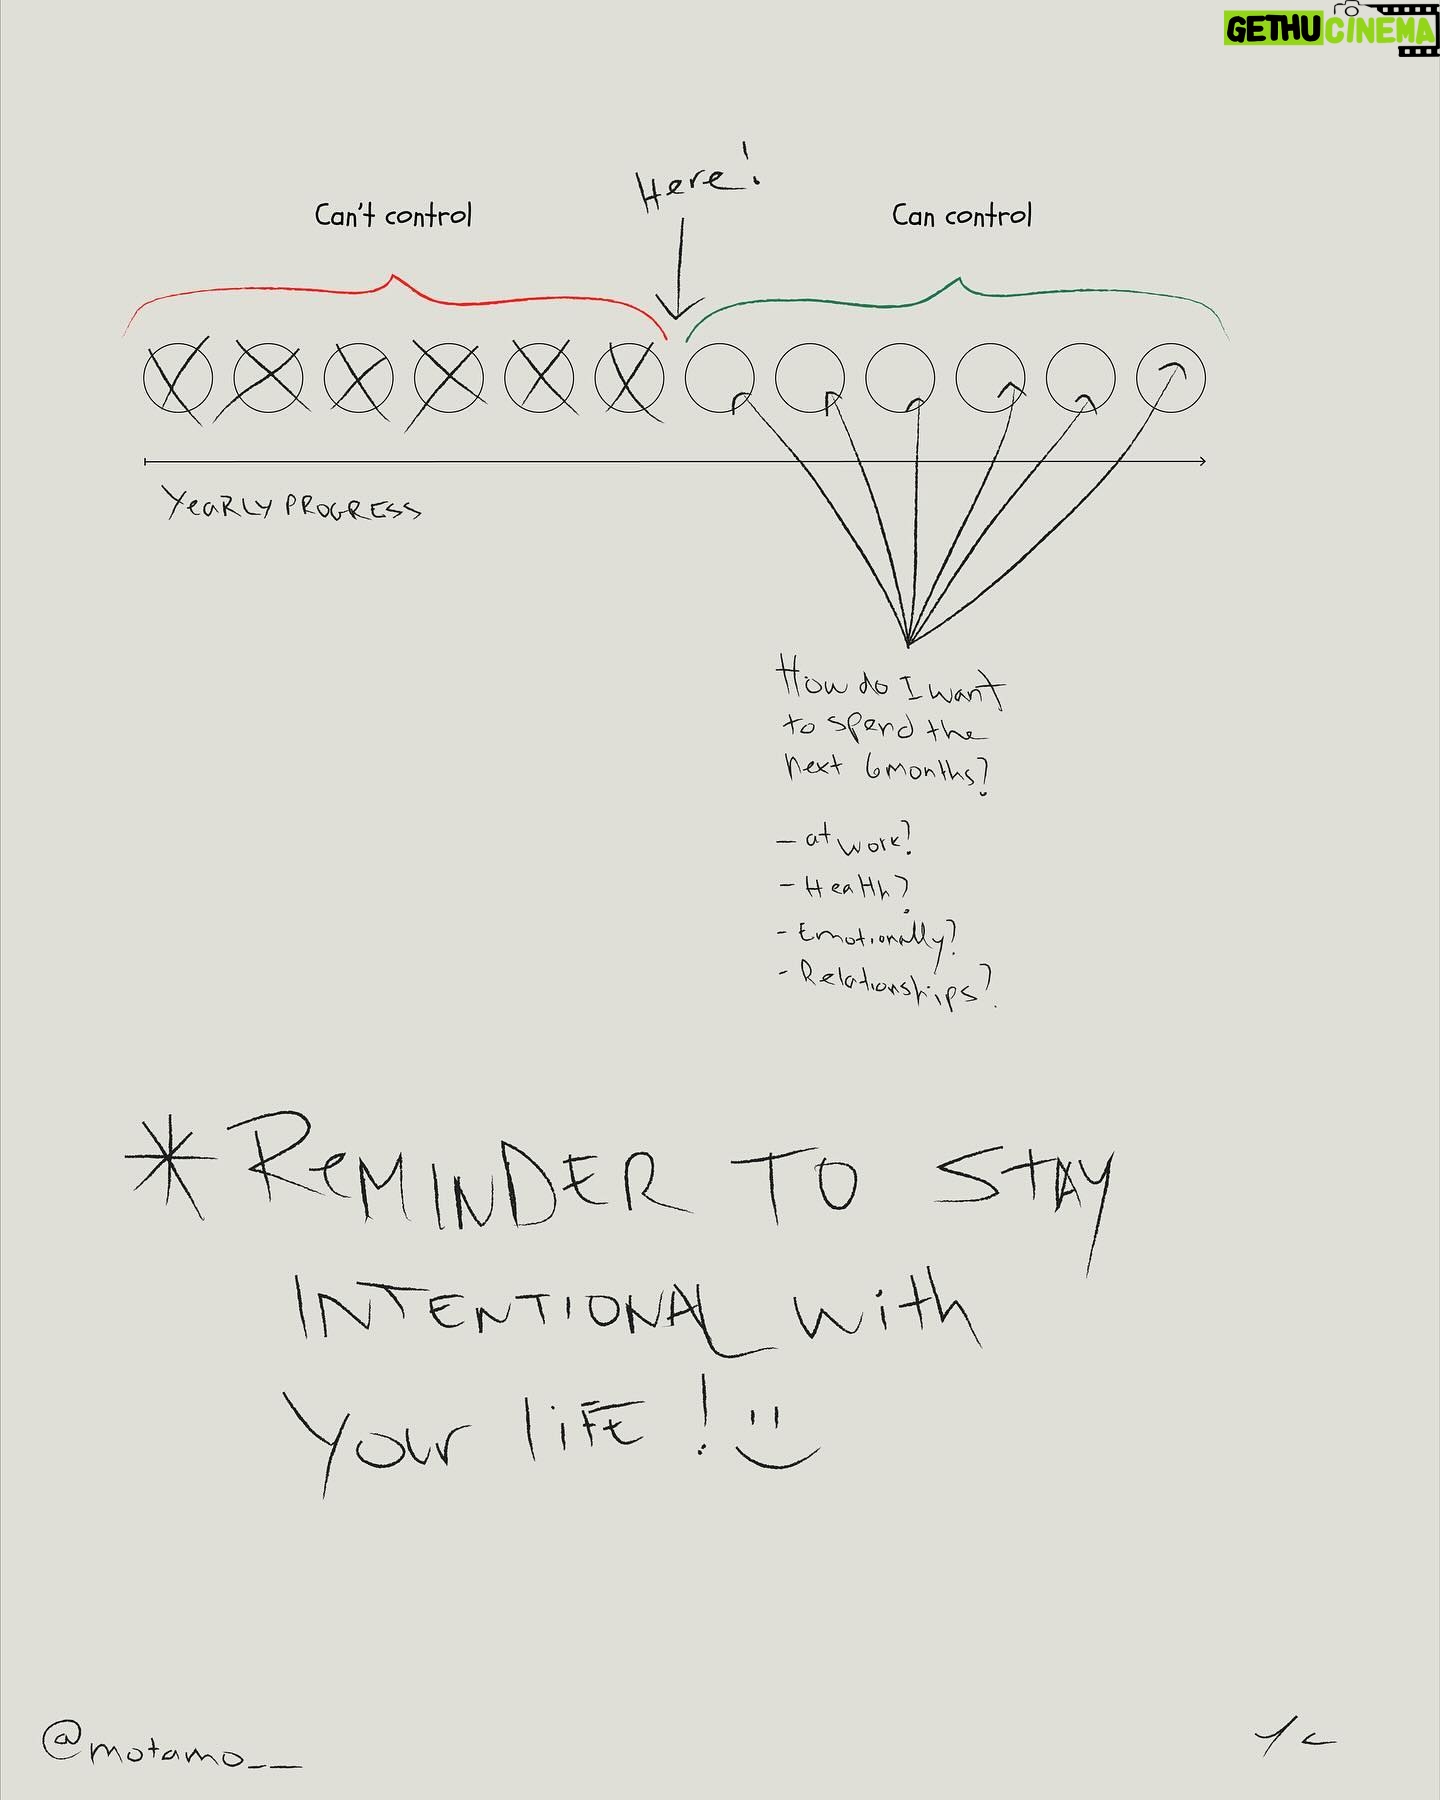 GETHUCINEMA
Here!
Can't control
Can control
YeARLY PROGRESS
How do I want
to spend the
next 6 months?
- at work?
- Health?
- Emotionally?
- Relationships?
* ReMINDER TO STAY
INTENTIONAL with
Your liFE! :)
@motamo__